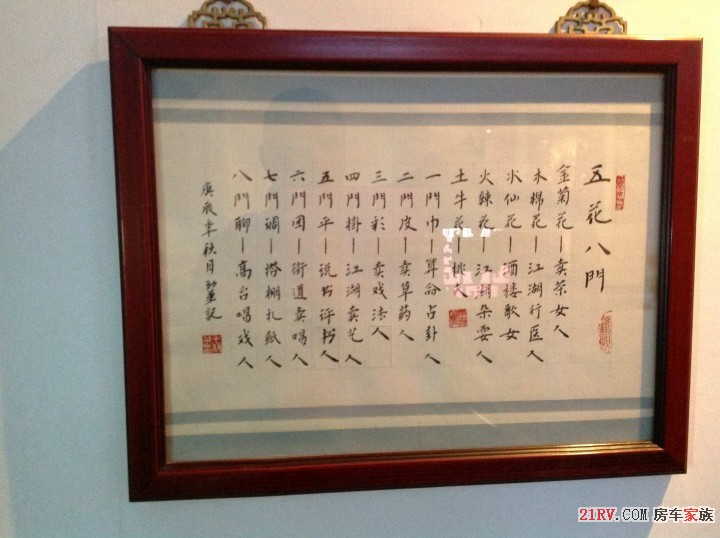 五花八門
金菊花—卖茶女人
木棉花—江湖行医人
水仙花—酒楼歌女
火辣花—江湖朵耍人
土牛花—挑夫
一門巾—算命占卦人
二門皮—卖草药人
三門彩—卖戏法人
四門掛—江湖卖艺人
五門平—说书评书人
六門团—街道卖唱人
七門调—搭棚扎紙人
八門聊—高台唱戏人
庚辰年秋月
記
21RV.COM 房车家族